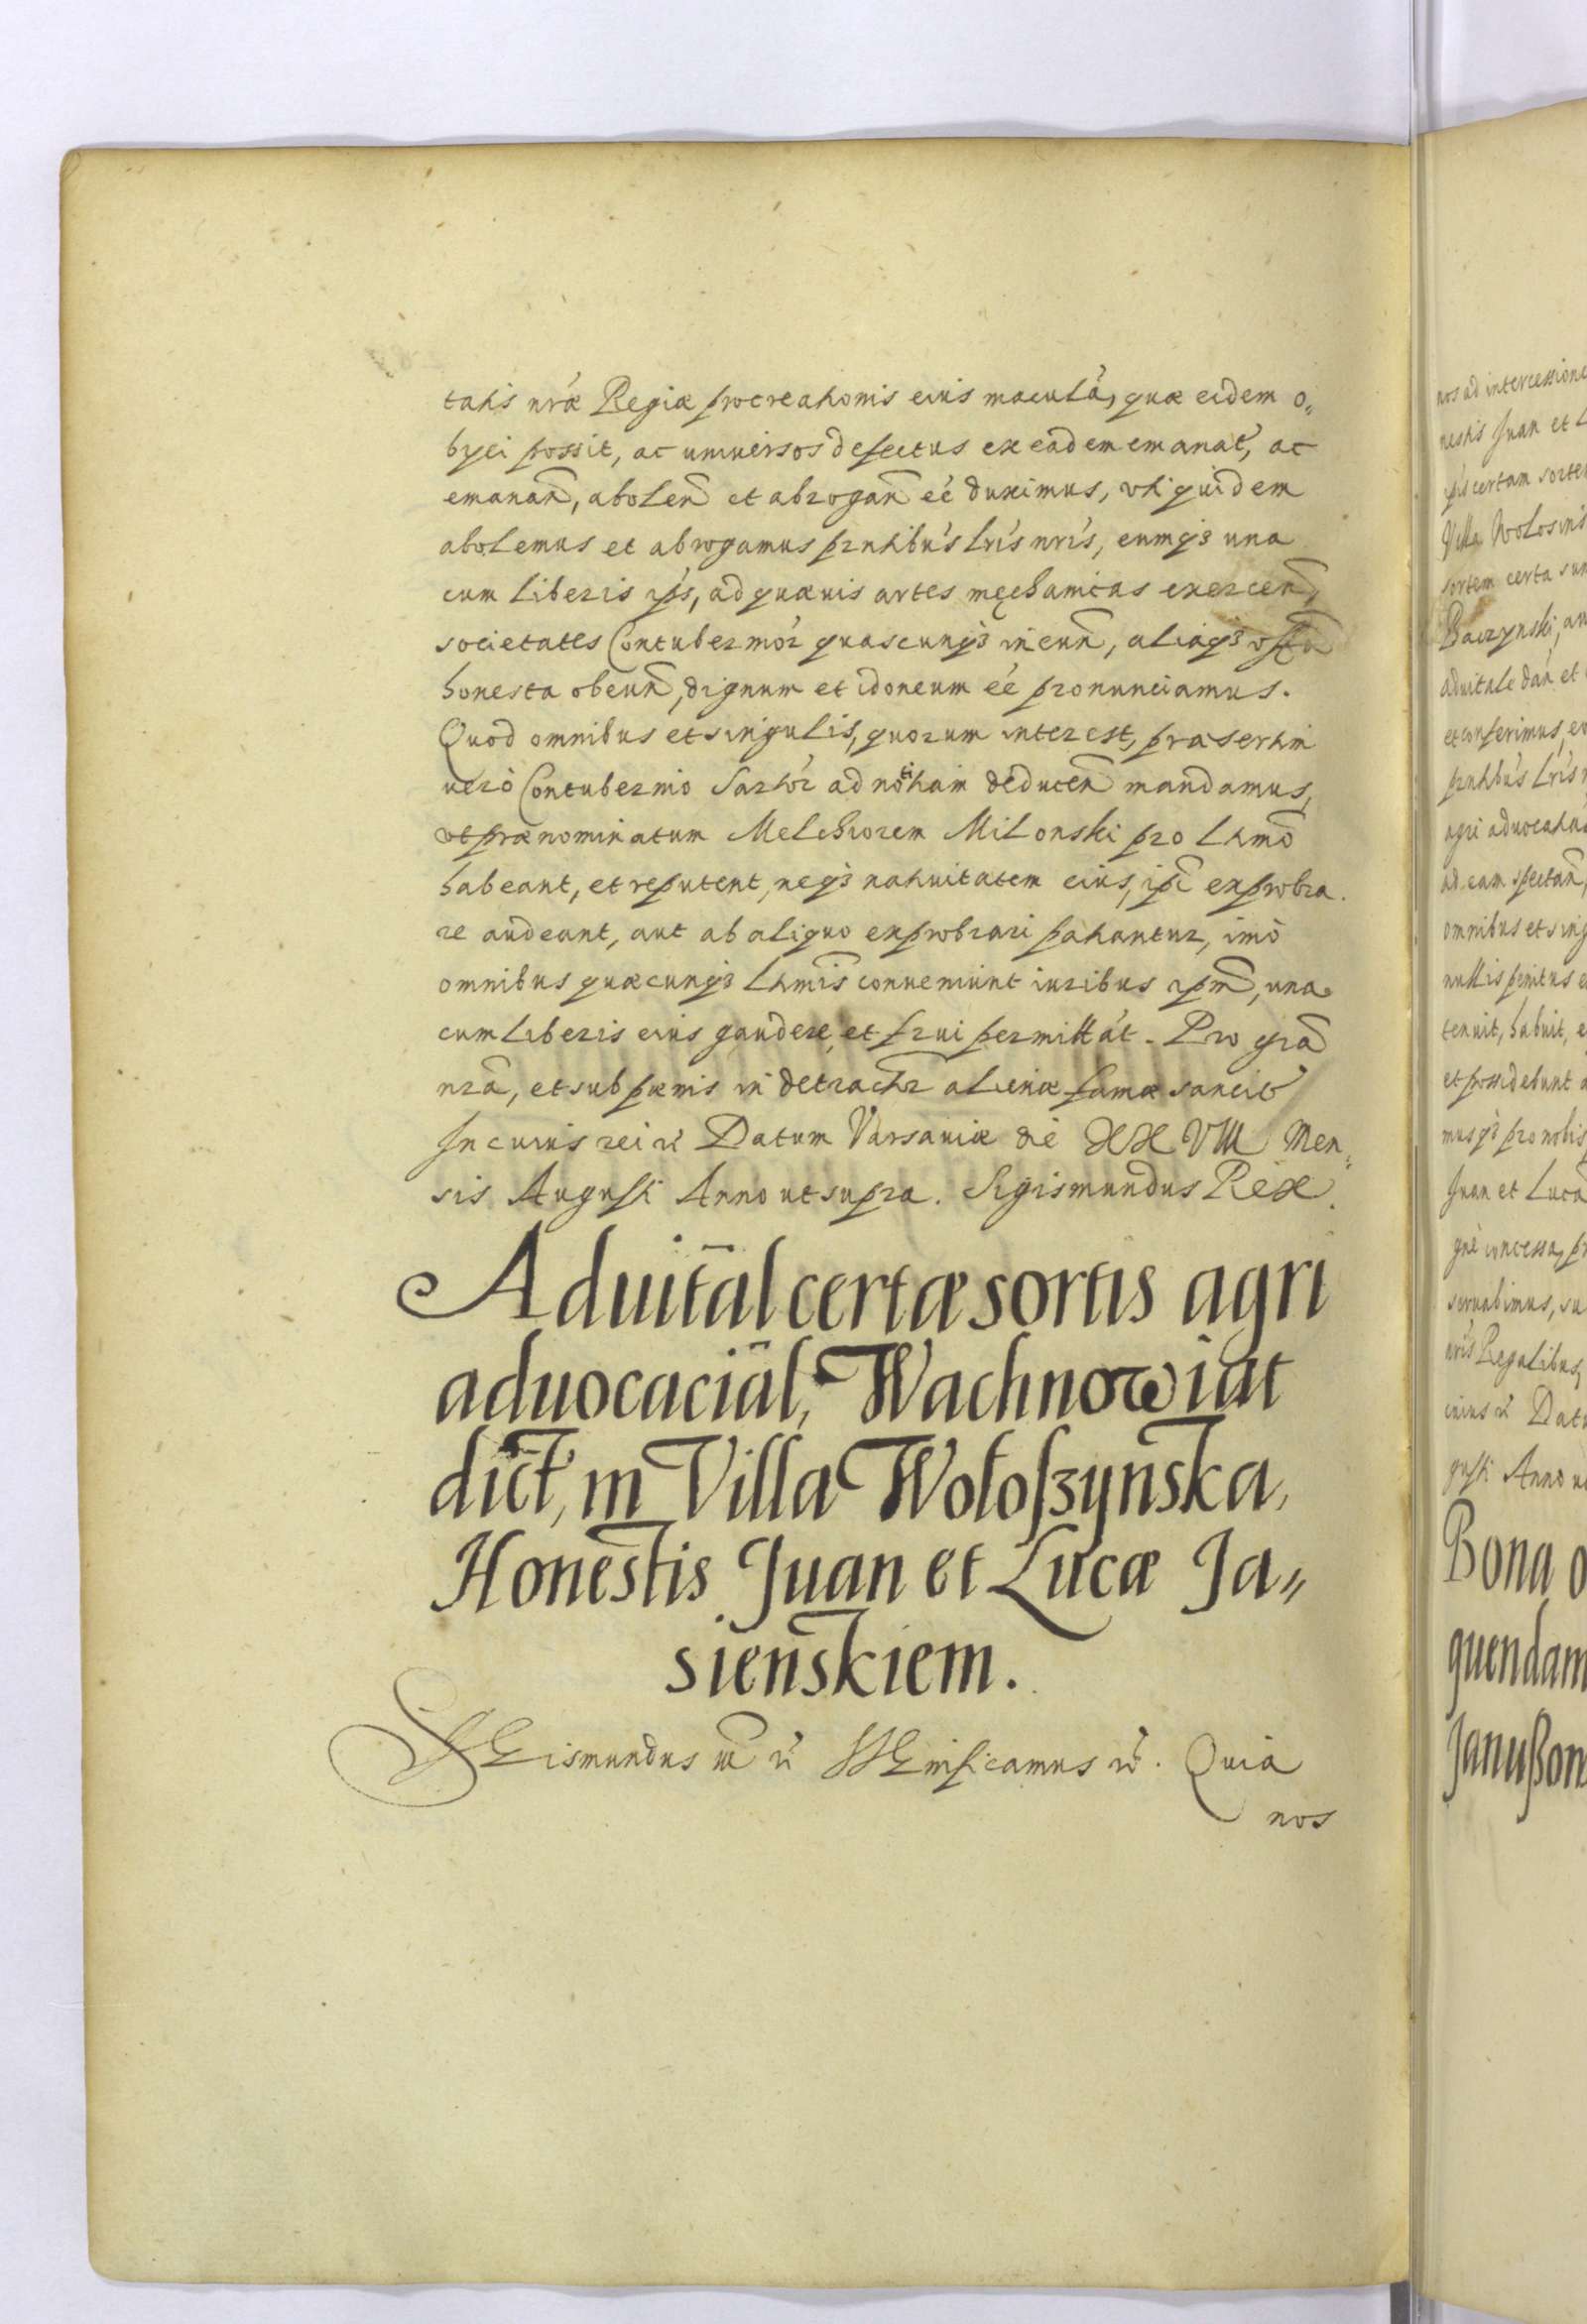 tatis nræ Regiæ procreationis eius maculã, quæ eidem o„
byci possit, ac universos defectus ex eadem emanat, ac
emanañ, aboleñ et abrogañ eé duximus, vti quidem
abolemus et abrogamus pntibus lris nris, eumq3 una
cum liberis ips, ad quæuis artes męchanicas exerceñ,
societates Contubernior quascunq3 ineuñ, aliaq3
honesta obeuñ, dignum et idoneum eé pronunciamus.
Quod omnibus et singulis, quorum interest, præsertim
uerò Contubernio Sartor ad notitiam deduceñ mandamus,
vt prænominatum Melchiorem Milonski pro Ltimo
habeant, et reputent, neq3 natiuitatem eius, ipi exprobra
re audeant, aut ab aliquo exprobrari patiantur, imò
omnibus quæcunq3 Ltimis conueniunt iuribus ipm, una
cum liberis eius gaudere, et frui permittãt. Pro grã
nrã, et sub pænis in detractor alienæ famæ sancit
In cuius rei rẽ Datum Varsauiæ die XX VIII Men„
sis Augusti Anno ut supra. Sigismundus Rex.
Aduitãl certæ sortis agri
aduocaciãl, Wachnowiat
dict, in Villa Wołoſzynska,
Honestis Juan et Lucæ Ja„
sienskiem.
SIGismundus ter rẽ SIGnificamus rẽ. Quia
nos
nos ad intercessione
nestis Juan et L
ips certam sorte
Villa Wolosins
sortem certa sum
Baczynski, an
aduitale dãn et
et conferimus, eu
pntibus Lris n
agri aduocatia
ad eam spectañ,
omnibus et sing
nullis penitus e
tenuit, habuit, e
et possidebunt a
musq3 pro nobis
Juan et Luca
gnè concessa, pr
seruabimus, su
nris Regalibus,
cuius rẽ Datu
gusti Anno u
Bona o
quendam
Janußon